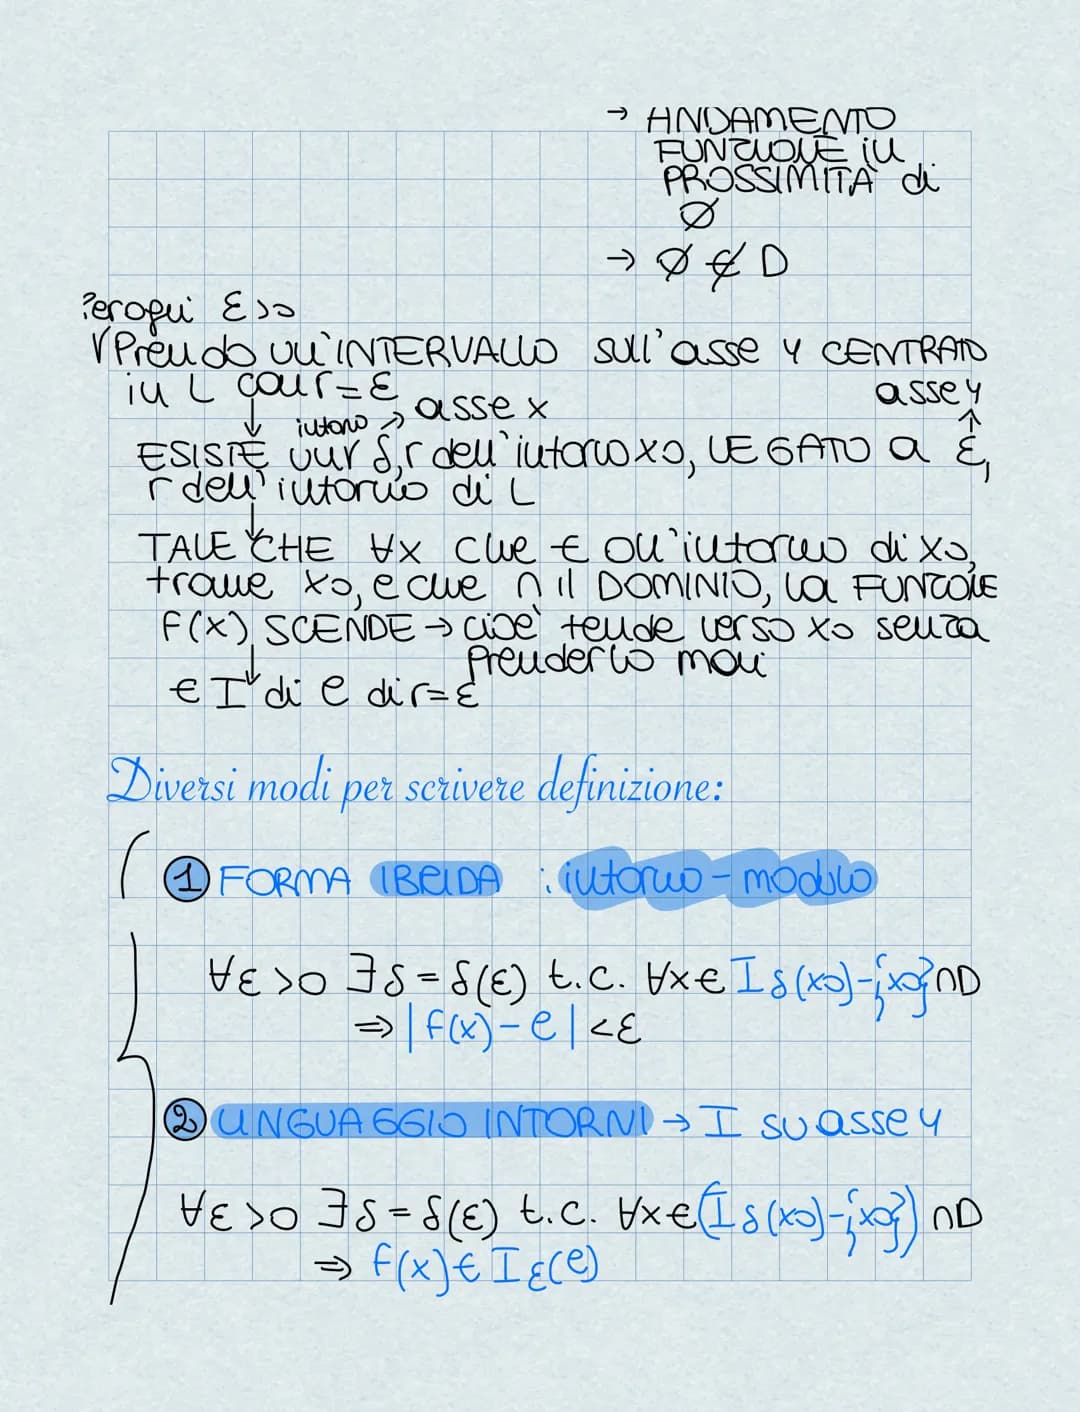 → ANDAMENTO
FUNZIONE in
PROSSIMITÀ di
Ø
→ Ø ∉ D
Per ogni ε>0
√Prendo un'INTERVALLO sull'asse y CENTRATO
in L con r=ε
asse y
intorno → asse x
ESISTE un r δ, r dell'intorno x0, LEGATO a ε,
r dell'intorno di L
TALE CHE ∀x che ∈ ou'intorno di x0,
tranne x0, e che ∩ il DOMINIO, la FUNZIOE
f(x) SCENDE → cioè tende verso x0 senza
prenderlo mai
∈ I di e di r=ε
Diversi modi per scrivere definizione:
1 FORMA IBRIDA : intorno - modulo
∀ε>0 ∃δ=δ(ε) t.c. ∀x∈Iδ(x0)-{x0}∩D
⇒ |f(x)-e|<ε
2 LINGUAGGIO INTORNI → I su asse y
∀ε>0 ∃δ=δ(ε) t.c. ∀x∈(Iδ(x0)-{x0})∩D
⇒ f(x)∈Iε(e)